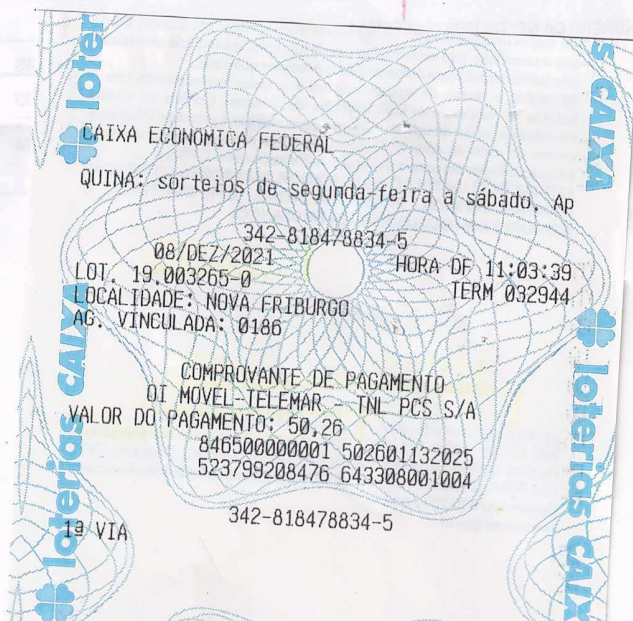 loterias
S CAIXA
CAIXA ECONOMICA FEDERAL
QUINA: sorteios de segunda-feira a sábado. Ap
342-818478834-5
08/DEZ/2021 HORA DF 11:03:39
LOT. 19.003265-0 TERM 032944
LOCALIDADE: NOVA FRIBURGO
AG. VINCULADA: 0186
COMPROVANTE DE PAGAMENTO
OI MOVEL-TELEMAR - TNL PCS S/A
VALOR DO PAGAMENTO: 50,26
846500000001 502601132025
523799208476 643308001004
342-818478834-5
1ª VIA
loterias CAIXA
loterias CAIXA